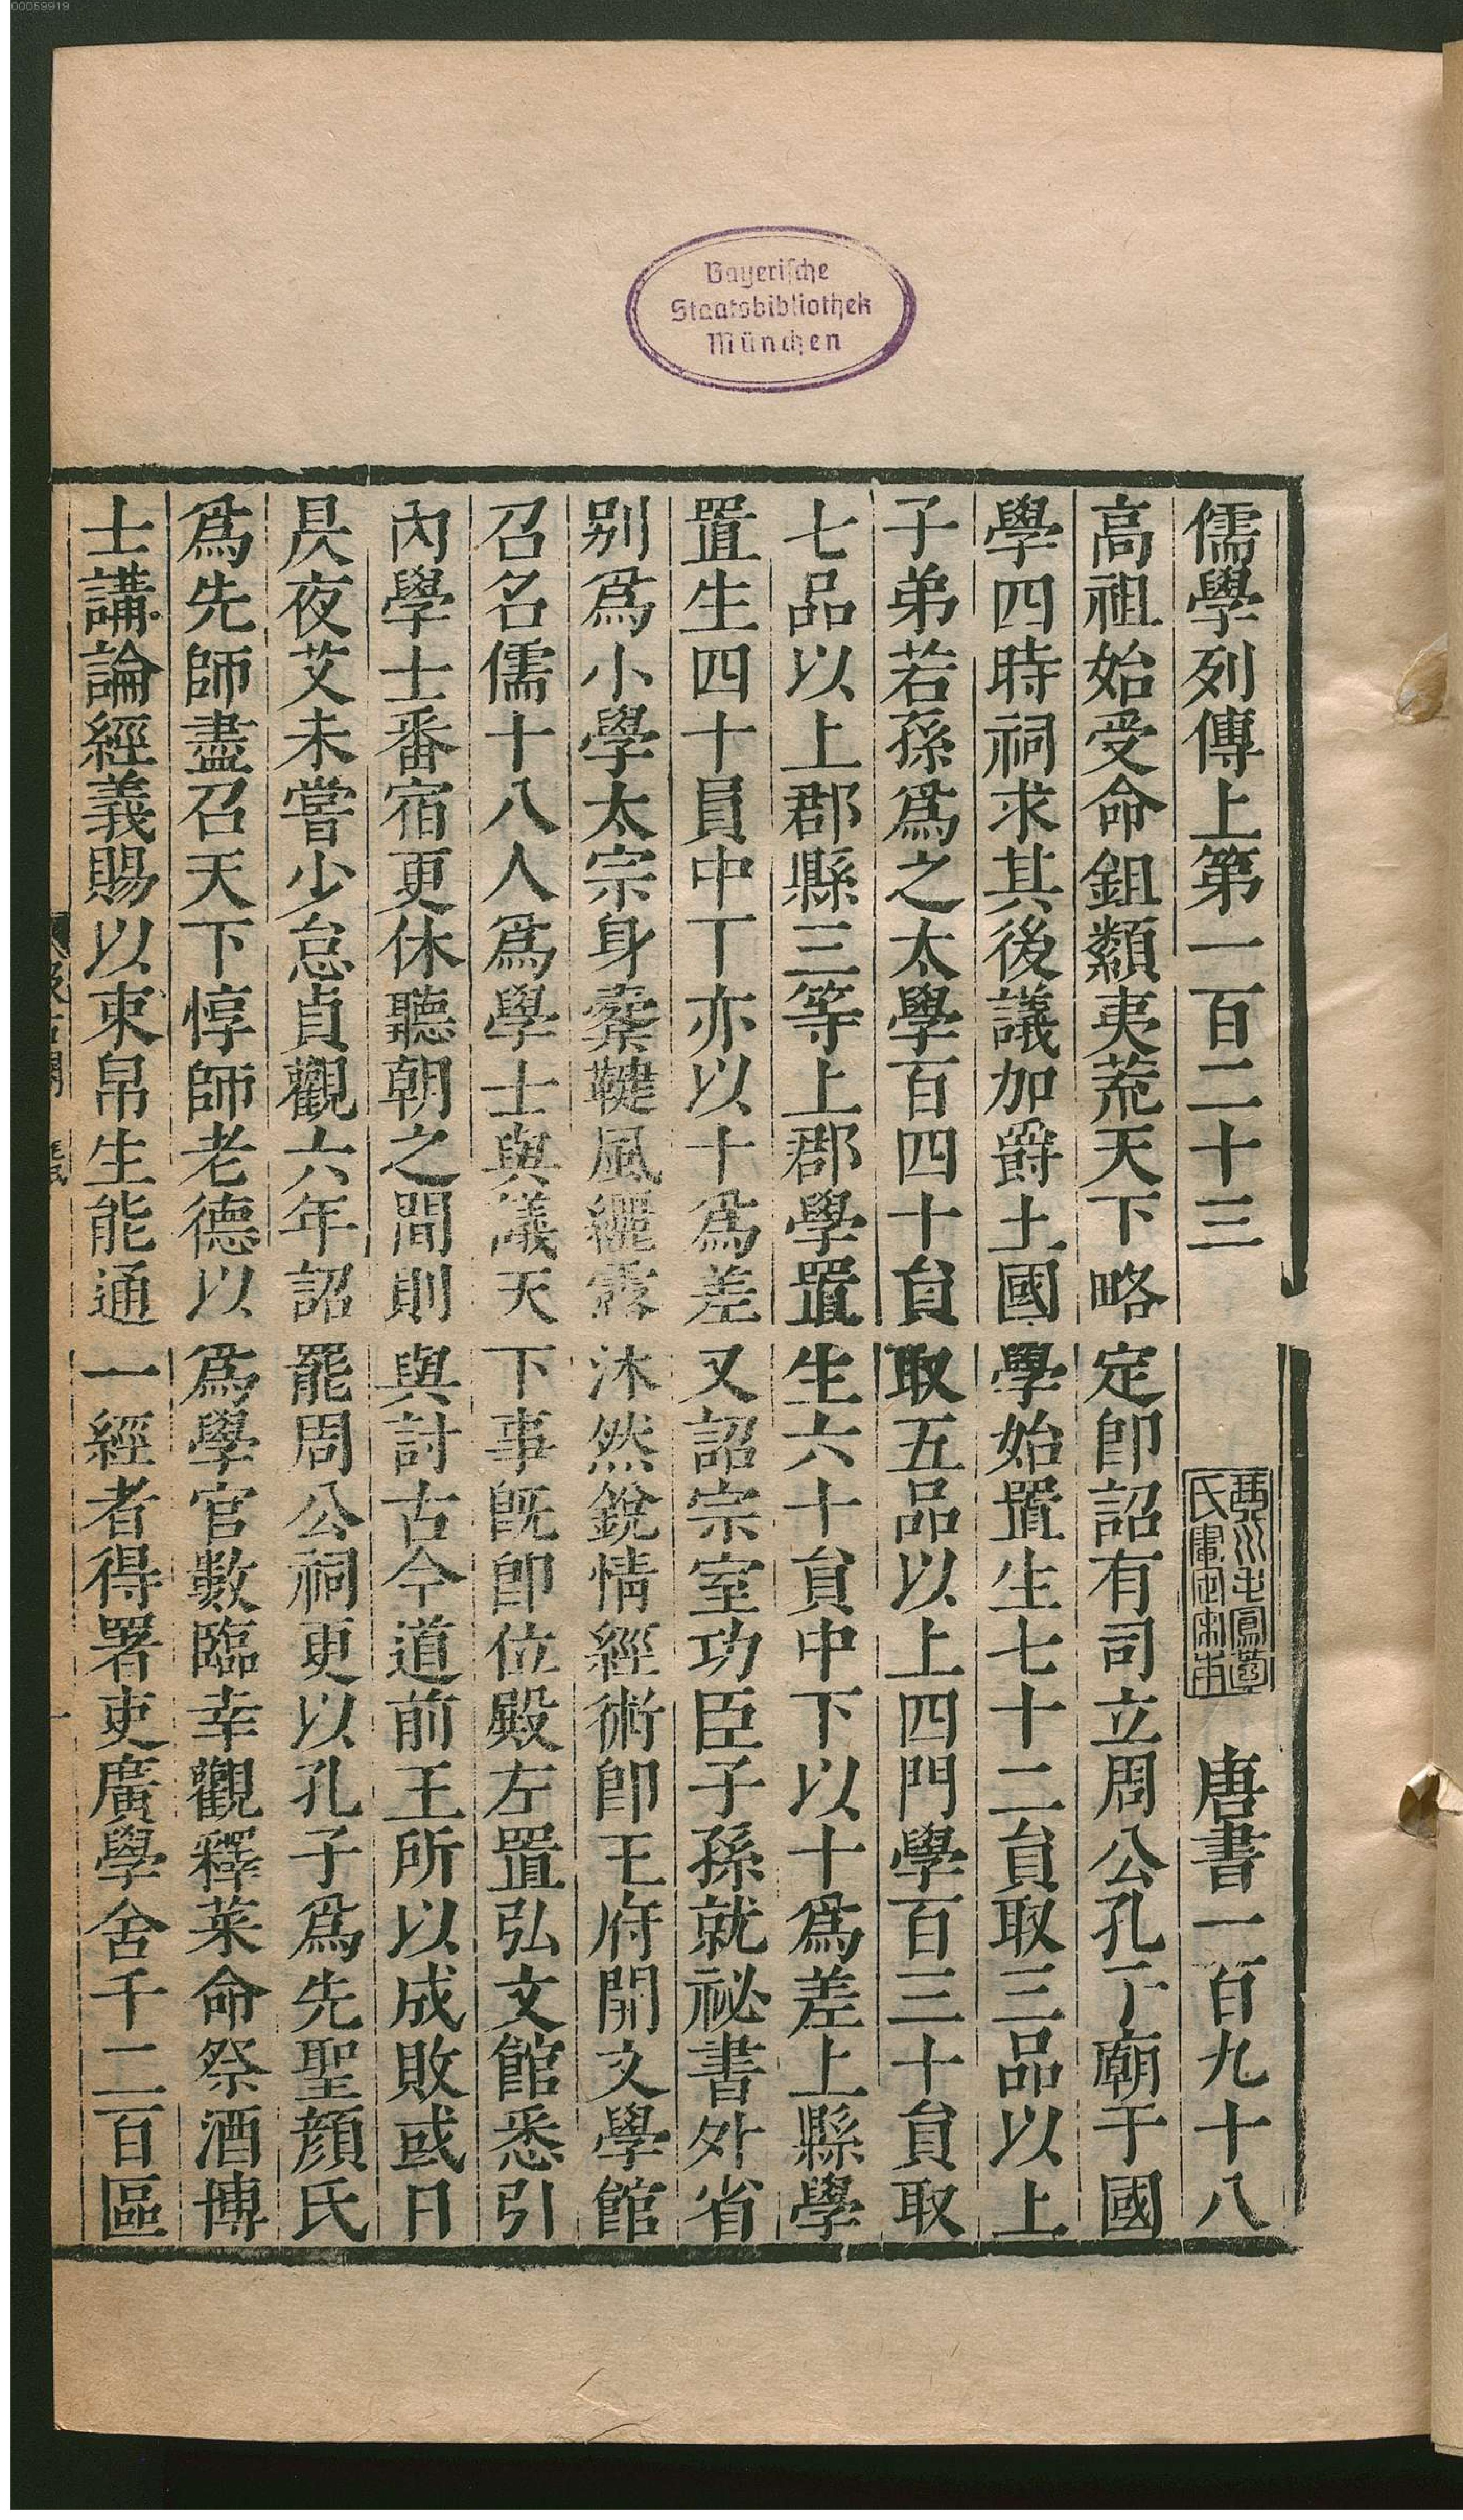 00059919
Bayerische
Staatsbibliothek
München
儒學列傳上第一百二十三 唐書一百九十八
高祖始受命鉏纇夷荒天下略定卽詔有司立周公孔丁廟于國
學四時祠求其後議加爵土國學始置生七十二員取三品以上
子弟若孫爲之太學百四十員取五品以上四門學百三十員取
七品以上郡縣三等上郡學置生六十員中下以十爲差上縣學
置生四十員中丁亦以十爲差又詔宗室功臣子孫就祕書外省
别爲小學太宗身櫜鞬風纚露沐然銳情經術卽王府開文學館
召名儒十八人爲學士與議天下事旣卽位殿左置弘文館悉引
內學士番宿更休聽朝之間則與討古今道前王所以成敗或日
昃夜艾未嘗少怠貞觀六年詔罷周公祠更以孔子爲先聖顏氏
爲先師盡召天下惇師老德以爲學官數臨幸觀釋菜命祭酒博
士講論經義賜以束帛生能通一經者得署吏廣學舍千二百區